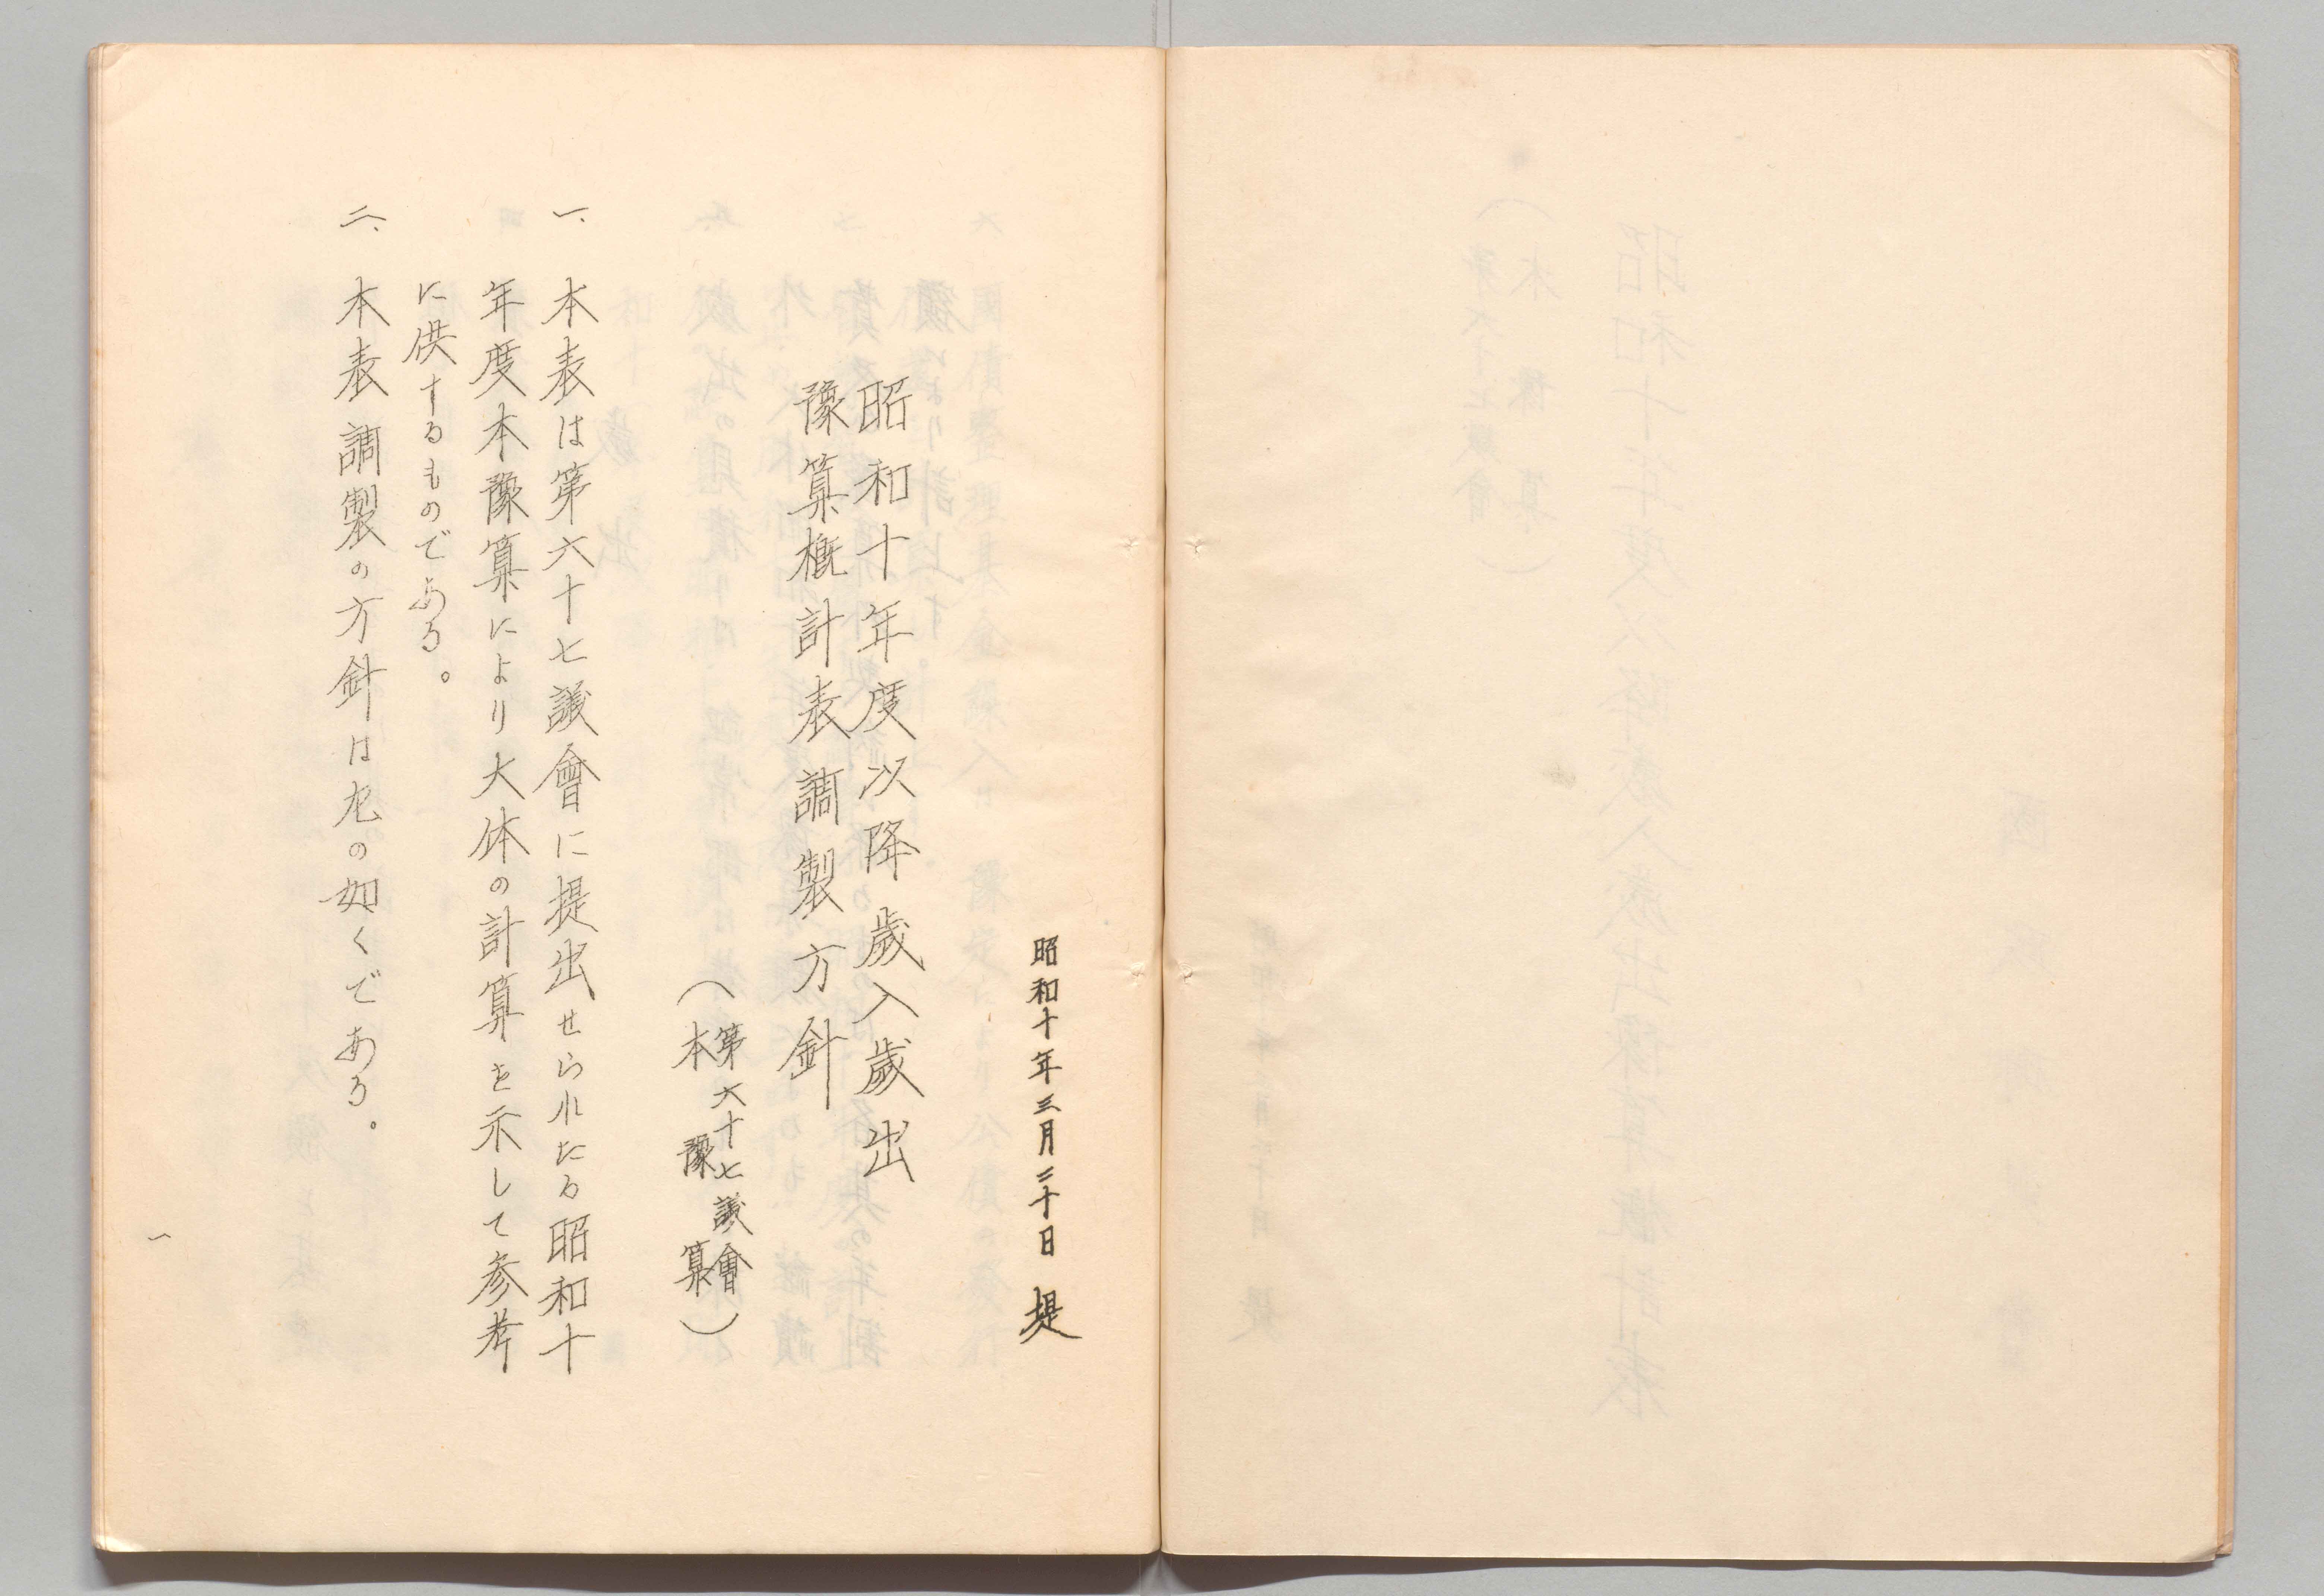 昭和十年三月二十日　堤
昭和十年度以降歲入歲出
豫算概計表調製方針
（第六十七議會
本豫算）
一、本表は第六十七議會に提出せられたる昭和十
年度本豫算により大体の計算を示して参考
に供するものである。
二、本表調製の方針は左の如くである。
一